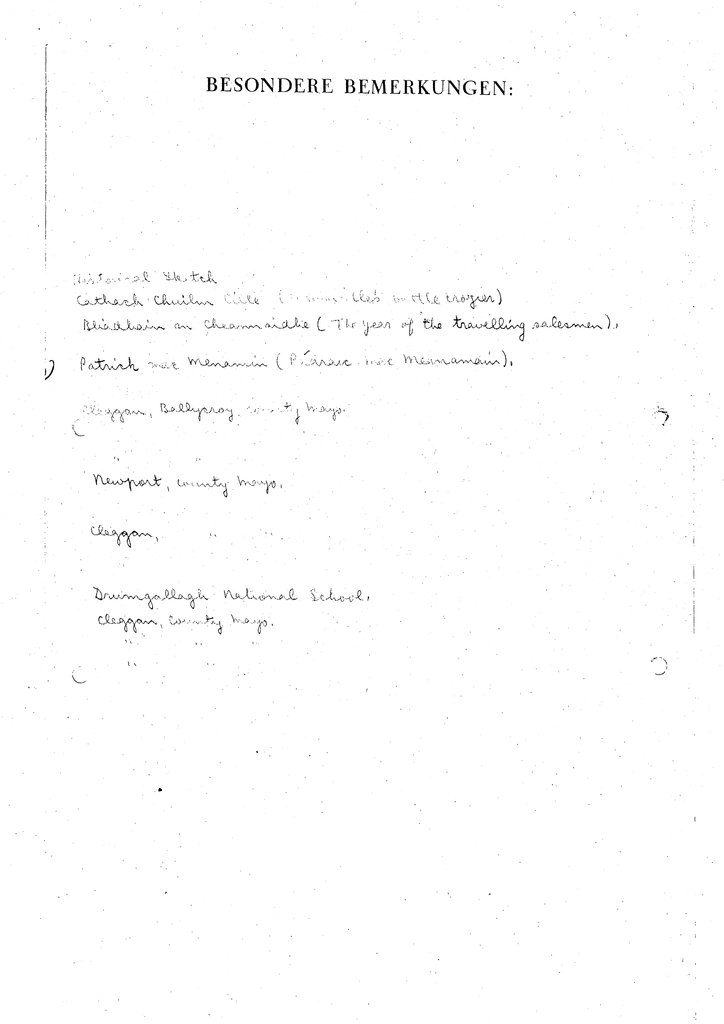 BESONDERE BEMERKUNGEN:
Historical Sketch
Cathach Chuilm Cille ( battle crozier)
Bliadhain an Cheannaidhe (The year of the travelling salesmen).
Patrick mac Menamin (Pádraic mac Meanamain).
Cleggan, Ballycroy, county Mayo.
" "
Newport, county Mayo.
Cleggan, " "
Drumgallagh National School,
Cleggan, county Mayo.
" "
" "